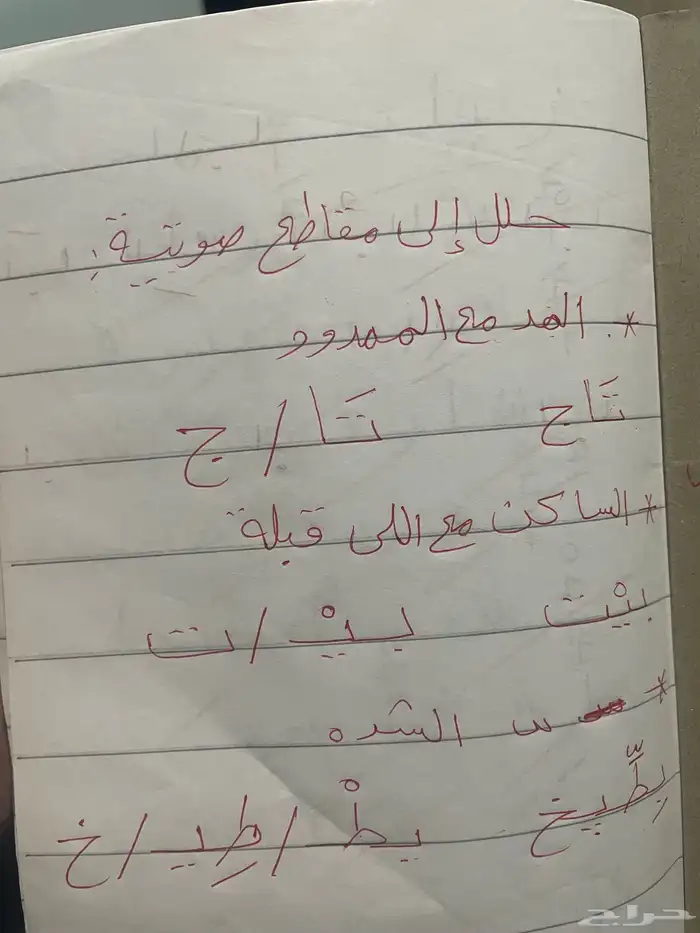 حلل إلى مقاطع صوتية:
* المد مع الممدود
تَاج تَـا / ج
* الساكن مع اللي قبلة
بيْت بـيْـ / ت
* الشده
بِطِّيخ بـطْ / طِيـ / خ
حراج